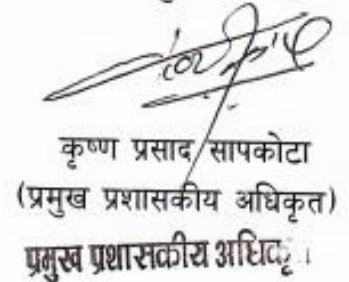 कृष्ण प्रसाद सापकोटा
(प्रमुख प्रशासकीय अधिकृत)
प्रमुख प्रशासकीय